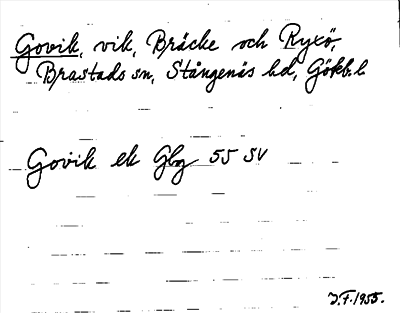 Govik, vik, Bräcke och Ryxö,
Brastads sn, Stångenäs hd, Gökb. l.
Govik ek Gbg 55 SV
J.F. 1955.